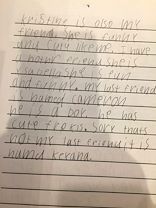 kristine is also my
friend. she is funny
and cute like me. I have
a nother friend she is
isabella she is fun
and funny. my last friend
is named cameron
he is a boy. he has
cute frekls. Sory thats
not my last friend it is
namd keyana.